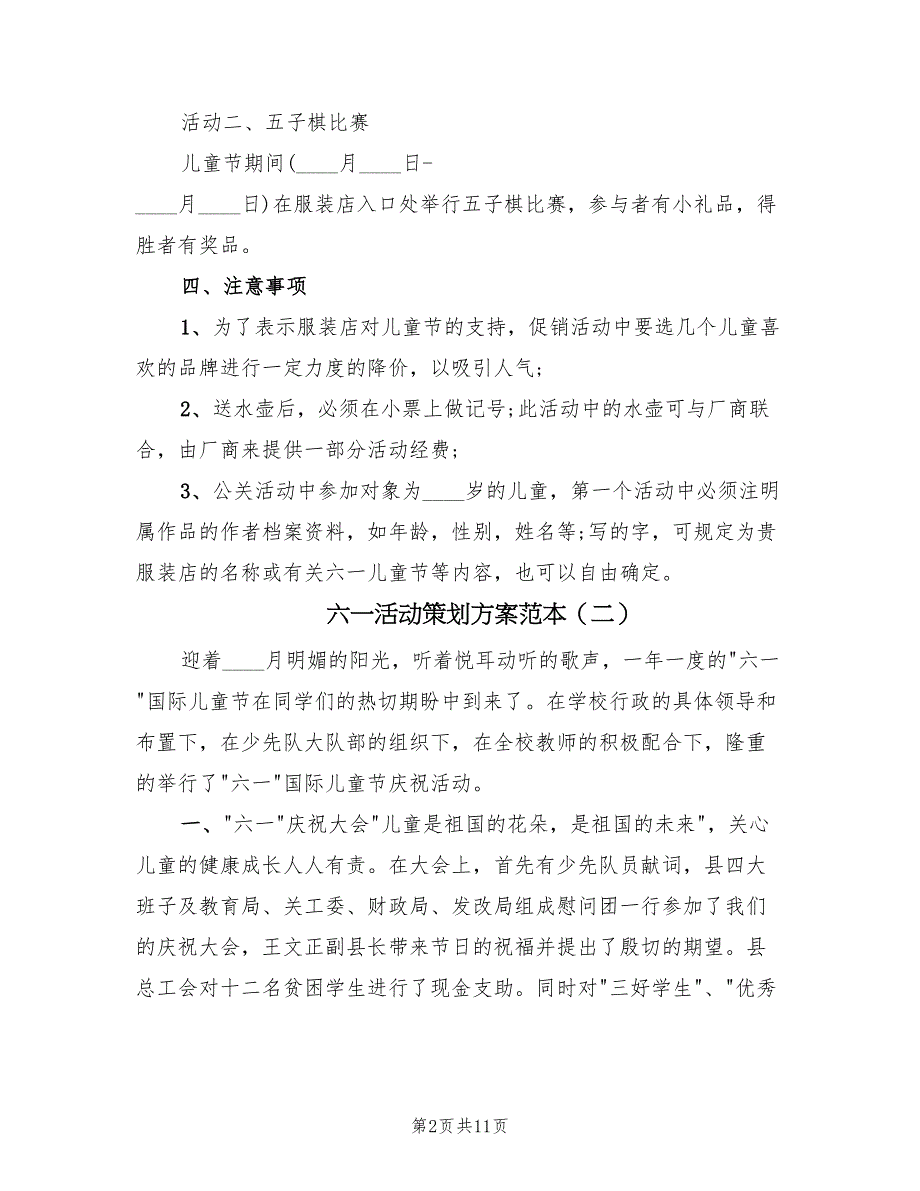 活动二、五子棋比赛
儿童节期间(____月____日-
____月____日)在服装店入口处举行五子棋比赛，参与者有小礼品，得
胜者有奖品。
四、注意事项
1、为了表示服装店对儿童节的支持，促销活动中要选几个儿童喜
欢的品牌进行一定力度的降价，以吸引人气;
2、送水壶后，必须在小票上做记号;此活动中的水壶可与厂商联
合，由厂商来提供一部分活动经费;
3、公关活动中参加对象为____岁的儿童，第一个活动中必须注明
属作品的作者档案资料，如年龄，性别，姓名等;写的字，可规定为贵
服装店的名称或有关六一儿童节等内容，也可以自由确定。
六一活动策划方案范本（二）
迎着____月明媚的阳光，听着悦耳动听的歌声，一年一度的"六一
"国际儿童节在同学们的热切期盼中到来了。在学校行政的具体领导和
布置下，在少先队大队部的组织下，在全校教师的积极配合下，隆重
的举行了"六一"国际儿童节庆祝活动。
一、"六一"庆祝大会"儿童是祖国的花朵，是祖国的未来"，关心
儿童的健康成长人人有责。在大会上，首先有少先队员献词，县四大
班子及教育局、关工委、财政局、发改局组成慰问团一行参加了我们
的庆祝大会，王文正副县长带来节日的祝福并提出了殷切的期望。县
总工会对十二名贫困学生进行了现金支助。同时对"三好学生"、"优秀
第2页共11页